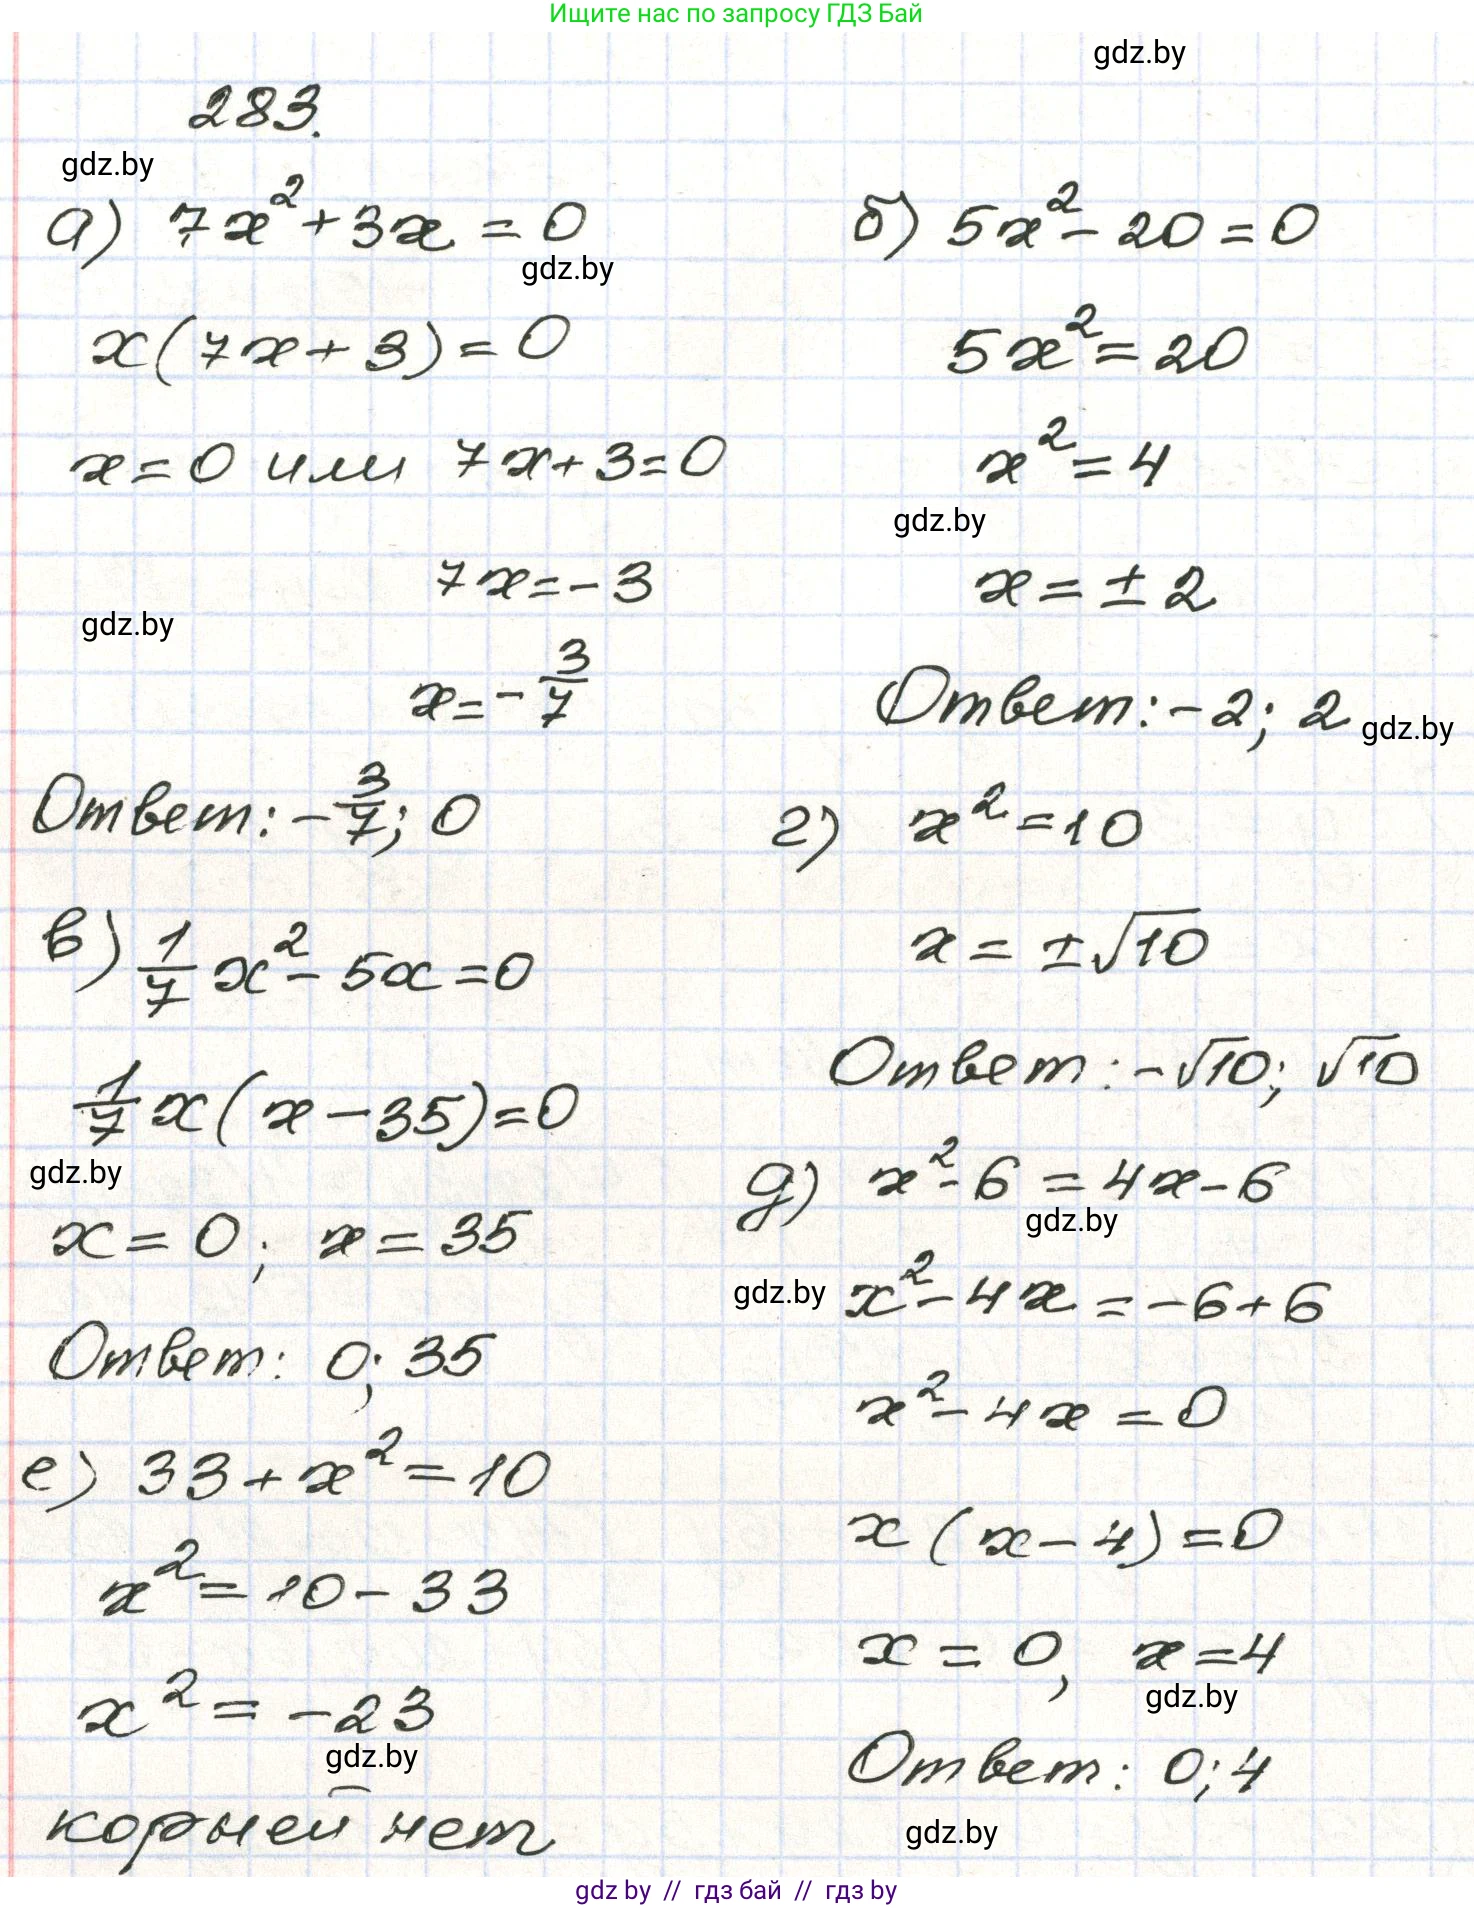 Ищите нас по запросу ГДЗ Бай
gdz.by
283.
gdz.by
а) 7x² + 3x = 0
gdz.by
x(7x + 3) = 0
x = 0 или 7x + 3 = 0
7x = -3
gdz.by
x = -3/7
Ответ: -3/7; 0
б) 5x² - 20 = 0
5x² = 20
x² = 4
gdz.by
x = ± 2
Ответ: -2; 2
gdz.by
в) 1/7 x² - 5x = 0
1/7 x(x - 35) = 0
gdz.by
x = 0; x = 35
Ответ: 0; 35
г) x² = 10
x = ±√10
Ответ: -√10; √10
д) x² - 6 = 4x - 6
gdz.by
gdz.by
x² - 4x = -6 + 6
x² - 4x = 0
x(x - 4) = 0
x = 0, x = 4
gdz.by
Ответ: 0; 4
gdz.by
е) 33 + x² = 10
x² = 10 - 33
x² = -23
gdz.by
корней нет
gdz by // гдз бай // гдз by